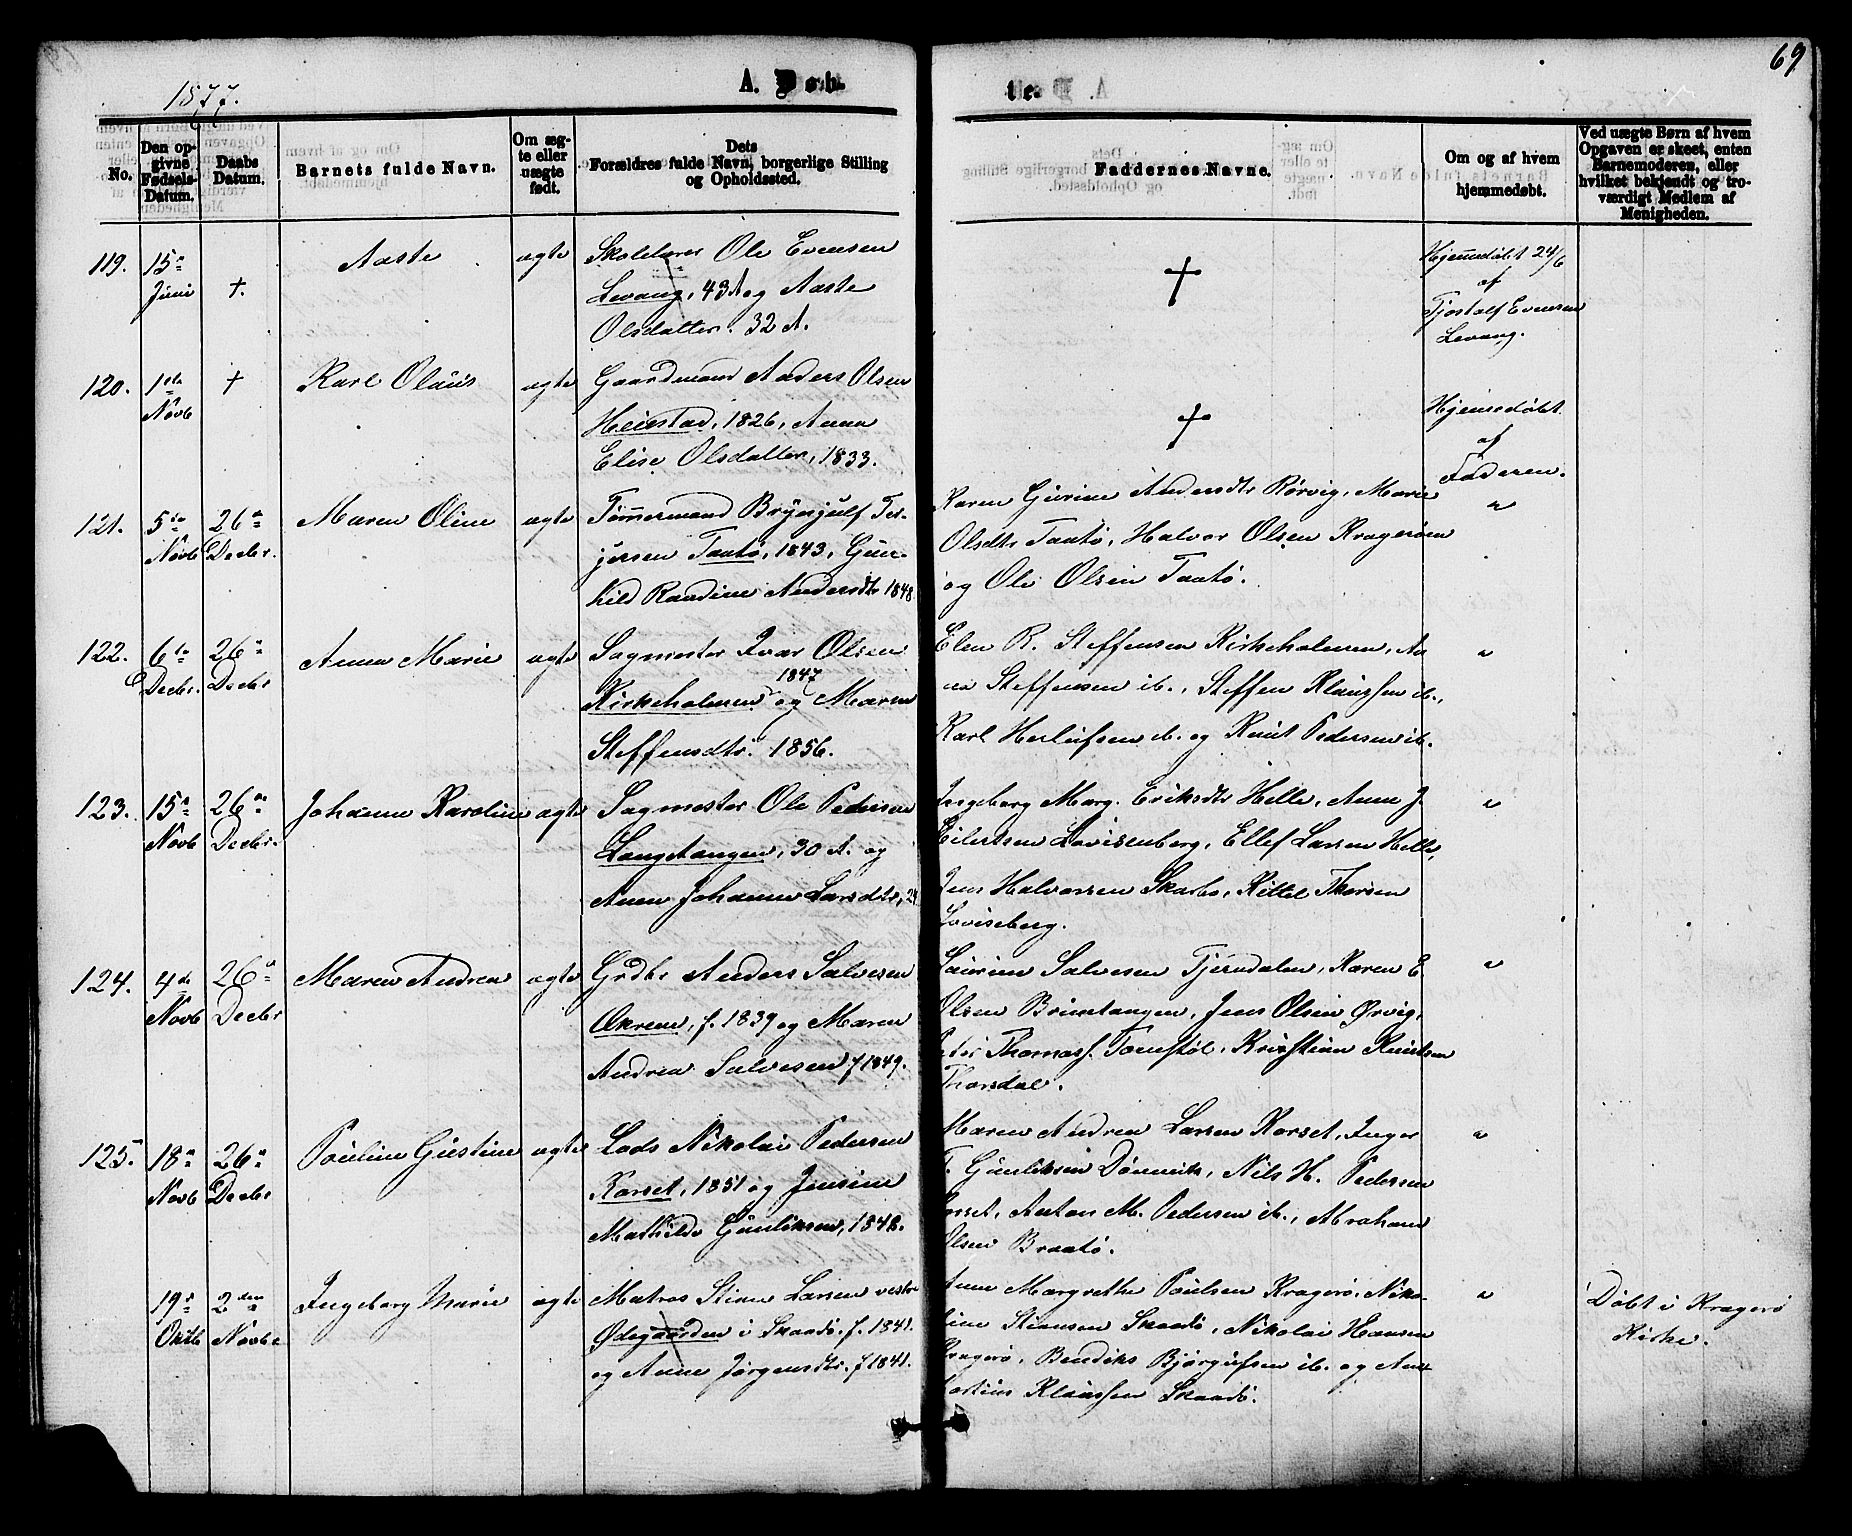 69
1877.
A. Døb-
te.
No.
Den op-
givne
Fødsels-
Datum.
Daabs
Datum.
Barnets fulde Navn.
Om æg-
te eller
uægte
født.
Dets
Forældres fulde Navn, borgerlige Stilling
og Opholdssted.
Faddernes Navne.
Om og af hvem
hjemmedøbt.
Ved uægte Børn af hvem
Opgaven er skeet, enten
Barnemoderen, eller
hvilket bekjendt og tro-
værdigt Medlem af
Menigheden.
119.
15de
Juni
†.
Aaste
ægte
Skolelærer Ole Evensen
Levang, 43 A og Aaste
Olsdatter. 32 A.
†
Hjemmedøbt 24/6
af
Tjostolf Evensen
Levang.
120.
1ste
Novb
†
Karl Olaus
ægte
Gaardmand Anders Olsen
Heistad, 1826, Anne
Elise Olsdatter, 1833.
†
Hjemmedøbt
af
Faderen.
121.
5te
Novb
26de
Decbr.
Maren Oline
ægte
Tømmermand Brynjulf Ter-
jersen Taatø, 1843, Gun-
hild Randine Andersdtr 1848.
Karen Gurine Andersdtr Rørvig, Marie
Olsdtr Taatø, Halvor Olsen Kragerøen
og Ole Olsen Taatø.
"
122.
6te
Decbr.
26de
Decbr
Anne Marie
ægte
Sagmester Ivar Olsen
1847
Kirkeholmen og Maren
Steffensdtr. 1856.
Elen R. Steffensen Kirkeholmen, An
na Steffensen ib., Steffen Klausen ib.,
Karl Herlufsen ib. og Knut Pedersen ib.
"
123.
15de
Novb
26de
Decbr.
Johanne Karoline
ægte
Sagmester Ole Pedersen
Langtangen, 30 A. og
Anne Johanne Larsdtr,
Ingeborg Marg. Eriksdtr Helle, Anne J.
Eilertsen Lovisenberg, Ellef Larsen Helle,
Jens Halvorsen Skarbo, Kittel Thorsen
Loviseberg.
"
124.
4de
Novb
26de
Decbr
Maren Andrea
ægte
Grdbr Anders Salvesen
Økrene, f. 1839 og Maren
Andrea Salvesen f 1849.
Laurine Salvesen Tjerndalen, Karen E.
Olsen Bruntangen, Jens Olsen Ørvig,
Peder Thomass. Tornstøl, Kristian Knutsen
Thorsdal.
"
125.
18de
Novb
26de
Decbr
Pauline Gustine
ægte
Lods Nikolai Pedersen
Korset, 1851 og Jensine
Mathilde Gunliksen, 1848.
Maren Andrea Larsen Korset, Inger
T. Gunliksen Dønnvik, Nils H. Pedersen
Korset, Anton M. Pedersen ib., Abraham
Olsen Braatø.
"
19de
Oktb
2den
Novbr
Ingeborg Marie
ægte
Matros Stian Larsen vestre
Ødegaarden i Skaadø f. 1841.
og Anne Jørgensdtr. f 1841.
Anne Margrethe Paulsen Kragerø, Niko-
line Stiansen Skaadø, Nikolai Hansen
Kragerø, Bendiks Bjørgufsen ib. og Ane
Klausen Skaadø.
"
Døbt i Kragerø
Kirke.